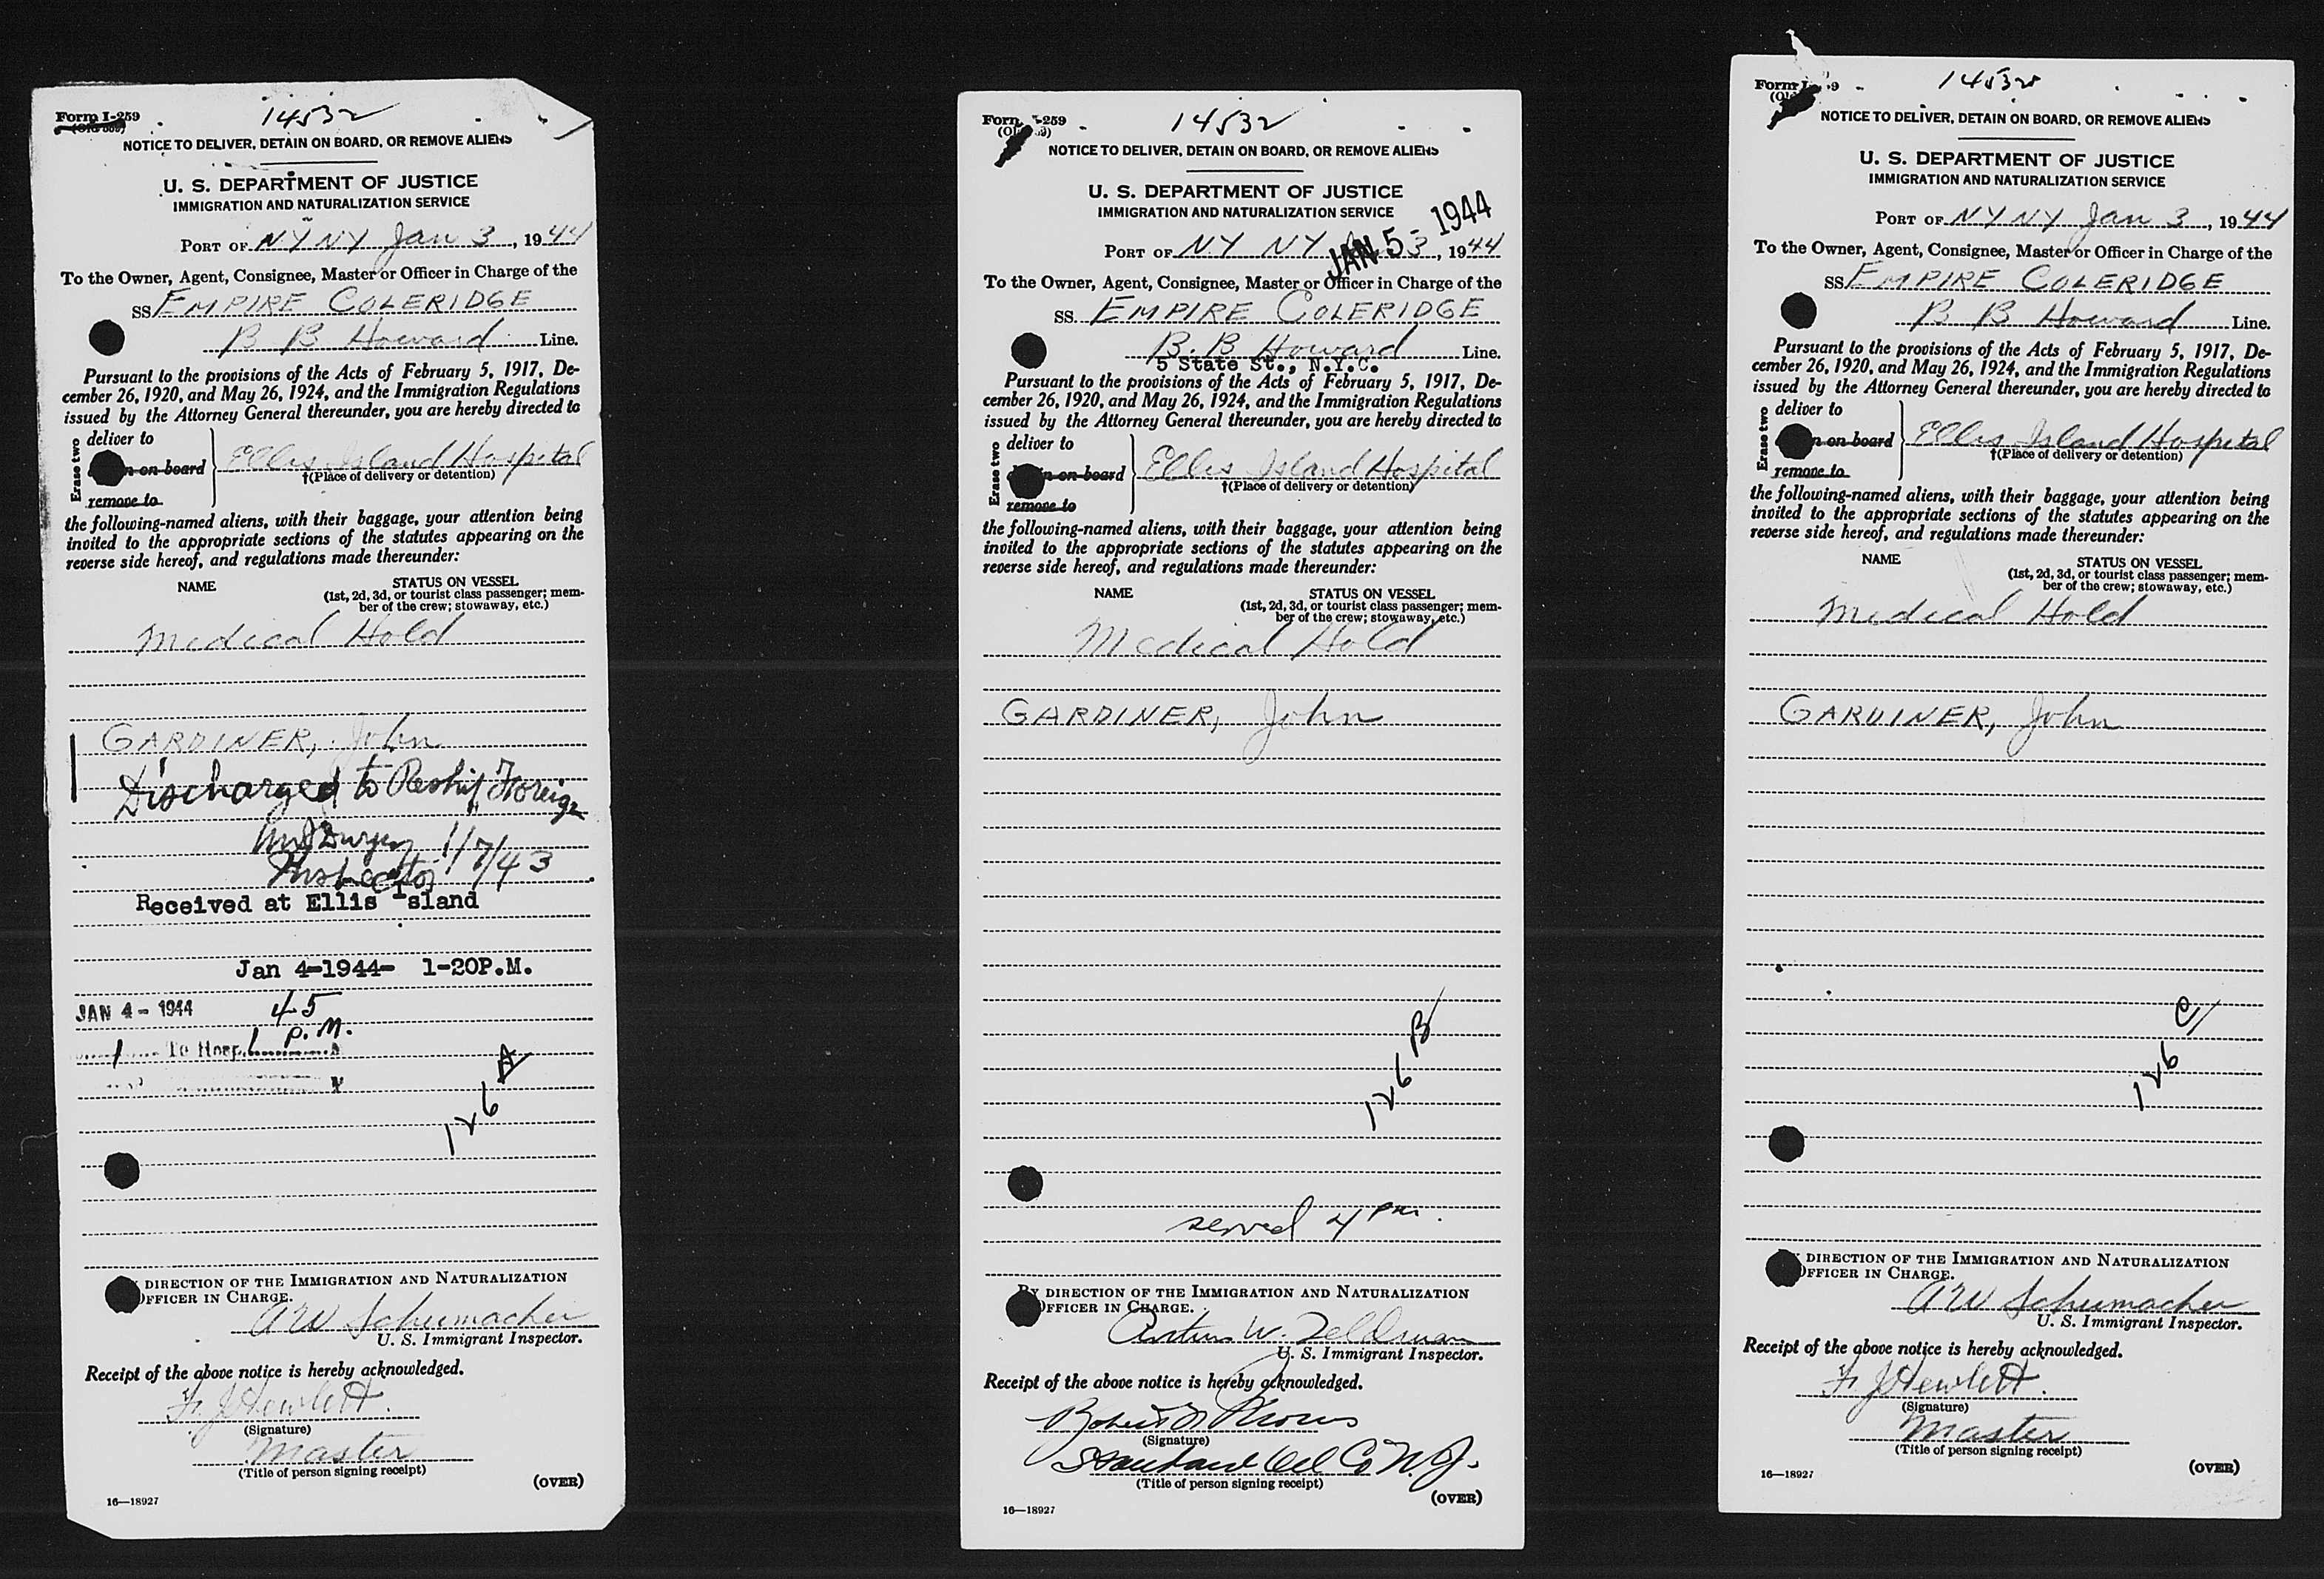 Form I-259
(Old 659)
14532
NOTICE TO DELIVER, DETAIN ON BOARD, OR REMOVE ALIENS
U. S. DEPARTMENT OF JUSTICE
IMMIGRATION AND NATURALIZATION SERVICE
PORT OF NY NY Jan 3, 1944
To the Owner, Agent, Consignee, Master or Officer in Charge of the
SS EMPIRE COLERIDGE
B B Howard Line.
Pursuant to the provisions of the Acts of February 5, 1917, De-
cember 26, 1920, and May 26, 1924, and the Immigration Regulations
issued by the Attorney General thereunder, you are hereby directed to
Erase two
deliver to
n on board
remove to
Ellis Island Hospital
†(Place of delivery or detention)
the following-named aliens, with their baggage, your attention being
invited to the appropriate sections of the statutes appearing on the
reverse side hereof, and regulations made thereunder:
NAME
STATUS ON VESSEL
(1st, 2d, 3d, or tourist class passenger; mem-
ber of the crew; stowaway, etc.)
Medical Hold
GARDINER, John
Discharged to Reship Foreign
1/7/43
Inspector
Received at Ellis Island
Jan 4-1944- 1-20P.M.
JAN 4 - 1944 45
1 To Hosp. 1 P.M.
126 A
DIRECTION OF THE IMMIGRATION AND NATURALIZATION
OFFICER IN CHARGE.
A W Schumacher
U. S. Immigrant Inspector.
Receipt of the above notice is hereby acknowledged.
F. J Hewlett.
(Signature)
Master
(Title of person signing receipt)
(OVER)
16—18927
Form I-259
14532
NOTICE TO DELIVER, DETAIN ON BOARD, OR REMOVE ALIENS
U. S. DEPARTMENT OF JUSTICE
IMMIGRATION AND NATURALIZATION SERVICE
JAN 5 - 1944
PORT OF N.Y NY 3, 1944
To the Owner, Agent, Consignee, Master or Officer in Charge of the
SS. EMPIRE COLERIDGE
B. B Howard Line.
5 State St., N.Y.C.
Pursuant to the provisions of the Acts of February 5, 1917, De-
cember 26, 1920, and May 26, 1924, and the Immigration Regulations
issued by the Attorney General thereunder, you are hereby directed to
Erase two
deliver to
n on board
remove to
Ellis Island Hospital
†(Place of delivery or detention)
the following-named aliens, with their baggage, your attention being
invited to the appropriate sections of the statutes appearing on the
reverse side hereof, and regulations made thereunder:
NAME
STATUS ON VESSEL
(1st, 2d, 3d, or tourist class passenger; mem-
ber of the crew; stowaway, etc.)
Medical Hold
GARDINER, John
126 B
served 4 PM.
By DIRECTION OF THE IMMIGRATION AND NATURALIZATION
OFFICER IN CHARGE.
Arthur W. Feldman
U. S. Immigrant Inspector.
Receipt of the above notice is hereby acknowledged.
Robert
(Signature)
Standard Oil Co N.J.
(Title of person signing receipt)
(OVER)
16—18927
Form I-259
14532
NOTICE TO DELIVER, DETAIN ON BOARD, OR REMOVE ALIENS
U. S. DEPARTMENT OF JUSTICE
IMMIGRATION AND NATURALIZATION SERVICE
PORT OF NY NY Jan 3, 1944
To the Owner, Agent, Consignee, Master or Officer in Charge of the
SS EMPIRE COLERIDGE
B B Howard Line.
Pursuant to the provisions of the Acts of February 5, 1917, De-
cember 26, 1920, and May 26, 1924, and the Immigration Regulations
issued by the Attorney General thereunder, you are hereby directed to
Erase two
deliver to
n on board
remove to
Ellis Island Hospital
†(Place of delivery or detention)
the following-named aliens, with their baggage, your attention being
invited to the appropriate sections of the statutes appearing on the
reverse side hereof, and regulations made thereunder:
NAME
STATUS ON VESSEL
(1st, 2d, 3d, or tourist class passenger; mem-
ber of the crew; stowaway, etc.)
Medical Hold
GARDINER, John
126 C
DIRECTION OF THE IMMIGRATION AND NATURALIZATION
OFFICER IN CHARGE.
A W Schumacher
U. S. Immigrant Inspector.
Receipt of the above notice is hereby acknowledged.
F. J Hewlett.
(Signature)
Master
(Title of person signing receipt)
(OVER)
16—18927